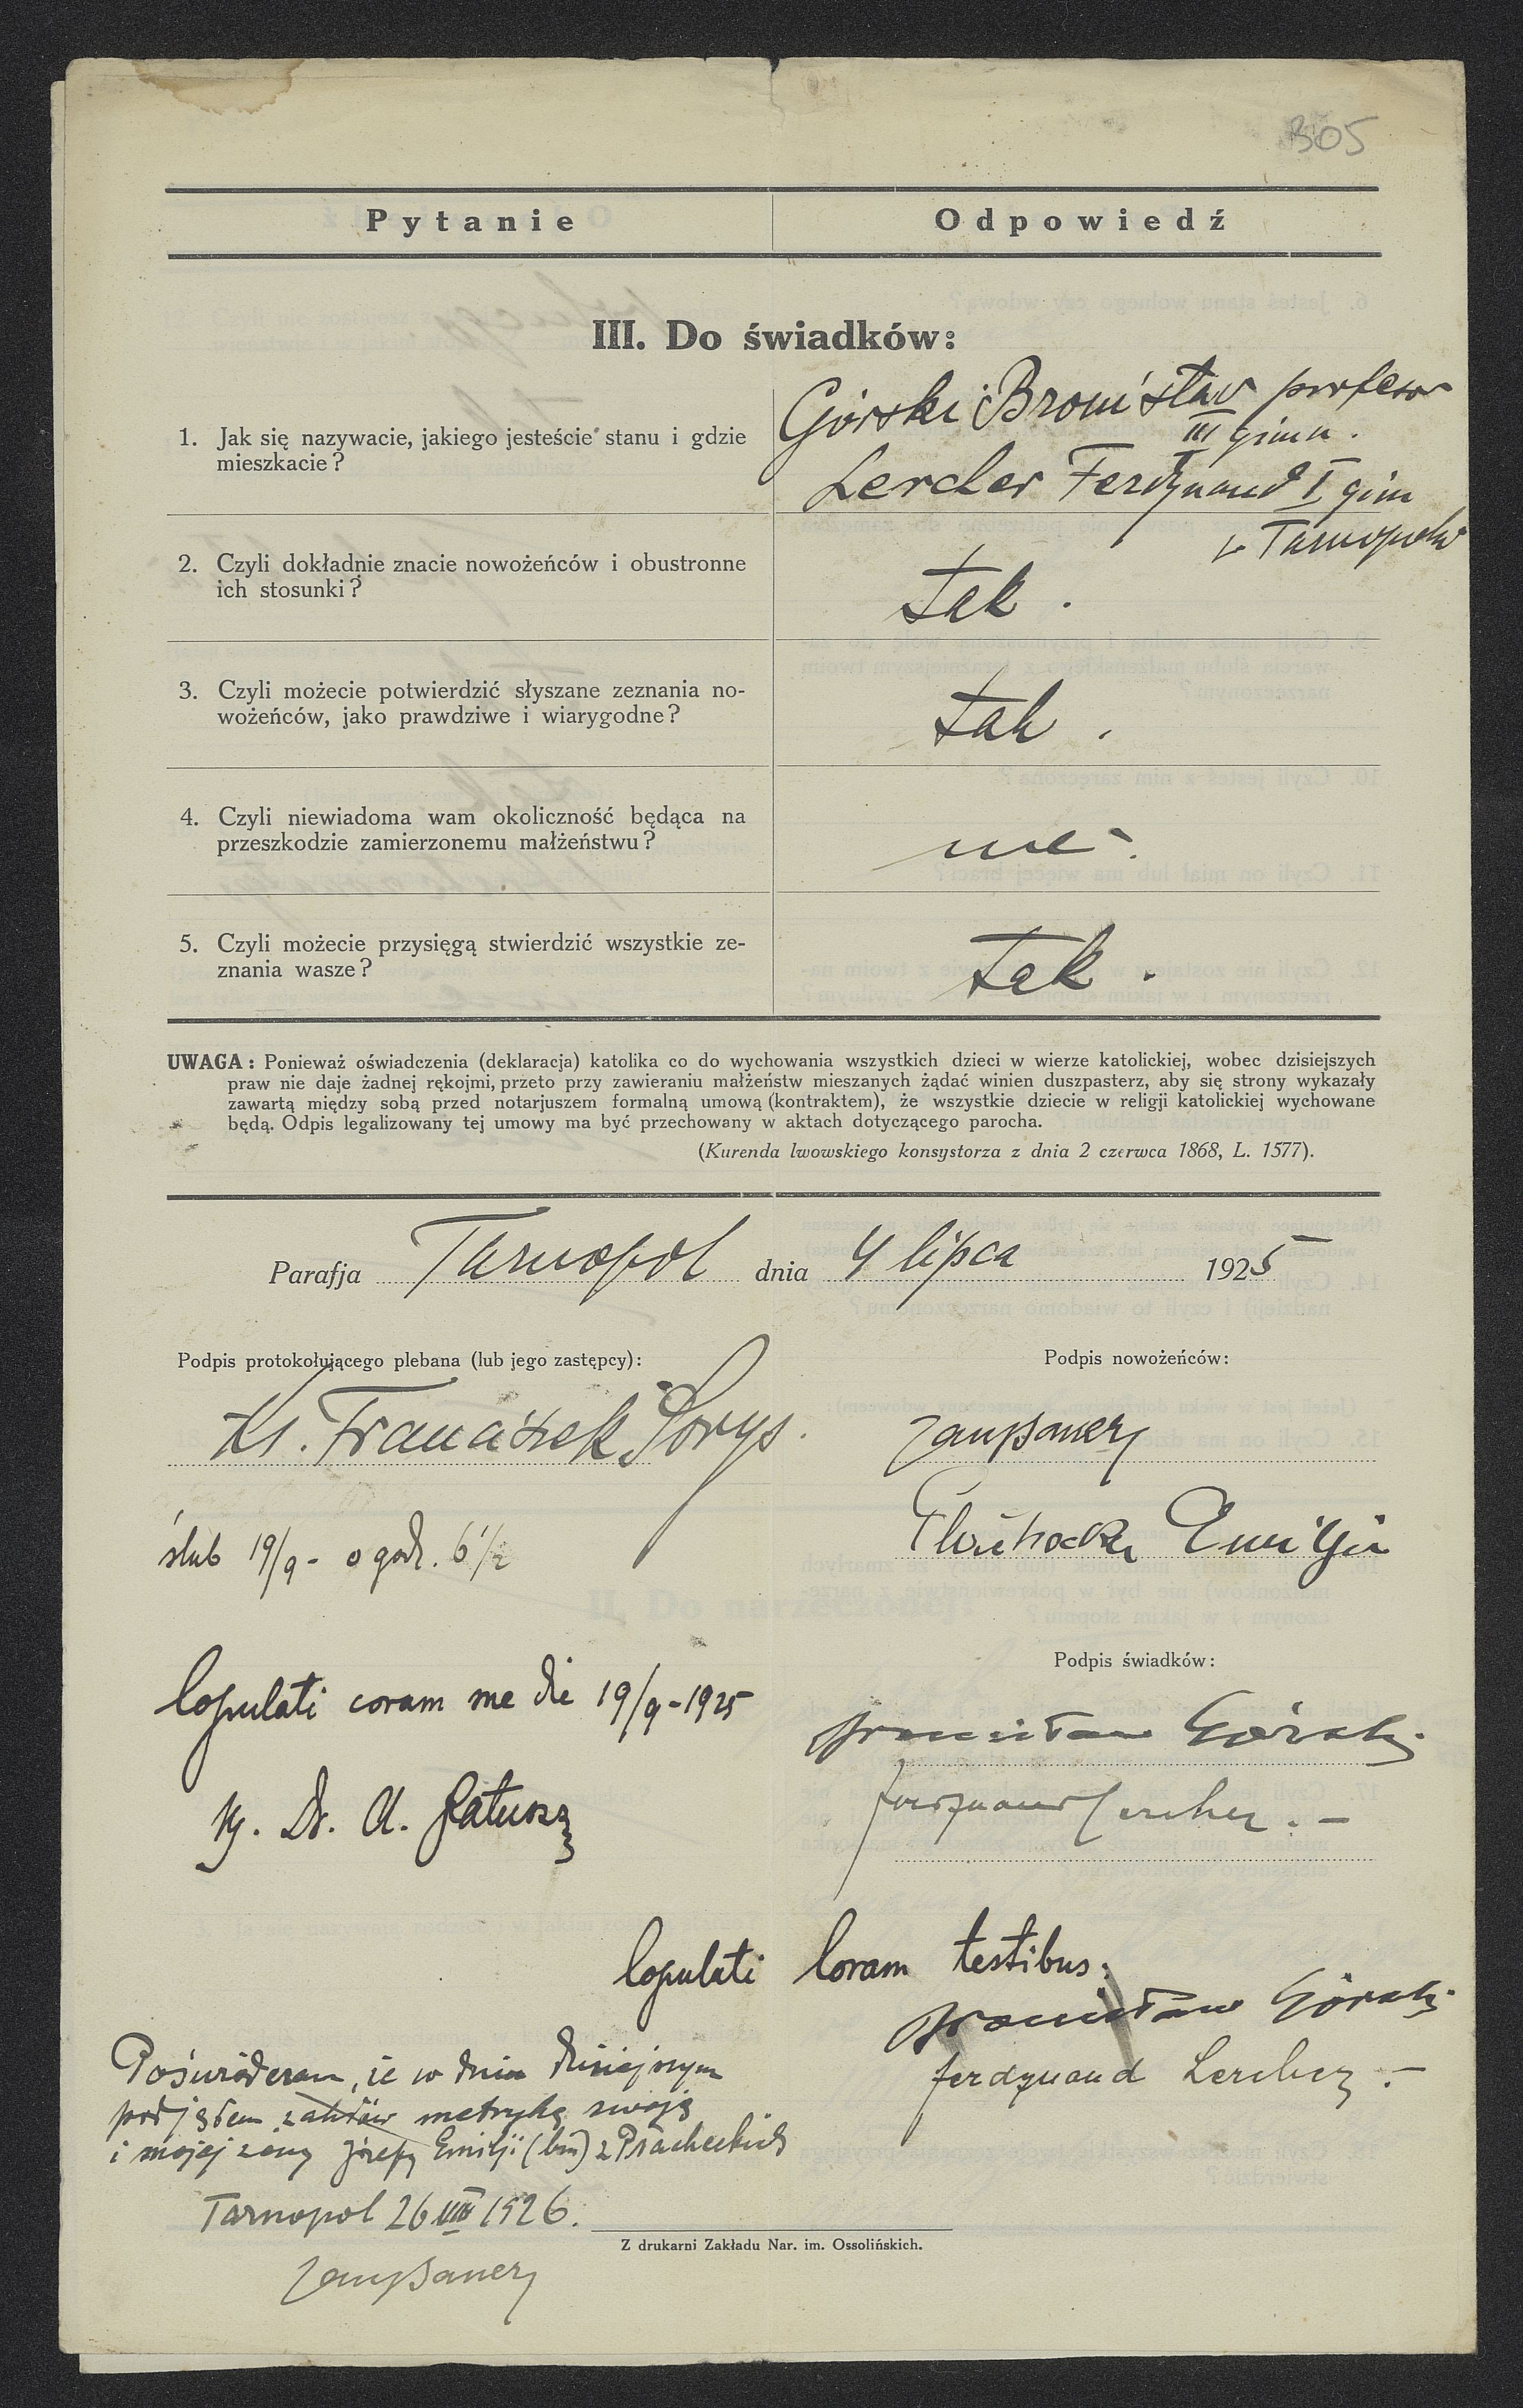 305
Pytanie Odpowiedź
III. Do świadków:
1. Jak się nazywacie, jakiego jesteście stanu i gdzie
mieszkacie?
Górski Bronisław profesor
III gimn.
Lercher Ferdynand I gim
w Tarnopolu
2. Czyli dokładnie znacie nowożeńców i obustronne
ich stosunki?
tak.
3. Czyli możecie potwierdzić słyszane zeznania no-
wożeńców, jako prawdziwe i wiarygodne?
tak.
4. Czyli niewiadoma wam okoliczność będąca na
przeszkodzie zamierzonemu małżeństwu?
nie.
5. Czyli możecie przysięgą stwierdzić wszystkie ze-
znania wasze?
tak.
UWAGA: Ponieważ oświadczenia (deklaracja) katolika co do wychowania wszystkich dzieci w wierze katolickiej, wobec dzisiejszych
praw nie daje żadnej rękojmi, przeto przy zawieraniu małżeństw mieszanych żądać winien duszpasterz, aby się strony wykazały
zawartą między sobą przed notarjuszem formalną umową (kontraktem), że wszystkie dziecie w religji katolickiej wychowane
będą. Odpis legalizowany tej umowy ma być przechowany w aktach dotyczącego parocha.
(Kurenda lwowskiego konsystorza z dnia 2 czerwca 1868, L. 1577).
Parafja Tarnopol dnia 4 lipca 1925
Podpis protokołującego plebana (lub jego zastępcy):
Podpis nowożeńców:
Ks. Franciszek Sorys.
Emilja
ślub 19/9 - o godz. 6 1/2
Podpis świadków:
Copulati coram me die 19/9-1925
Bronisław Górski.
Ferdynand Lercher. –
X. Dr. A. Ratusz
Copulati Coram testibus:
Bronisław Górski.
Ferdynand Lercher. –
Poświadczam, że w dniu dzisiejszym
podjąłem metrykę swoją
i mojej żony Józefy Emilji (bm) z
Tarnopol 26 VIII 1926.
Z drukarni Zakładu Nar. im. Ossolińskich.